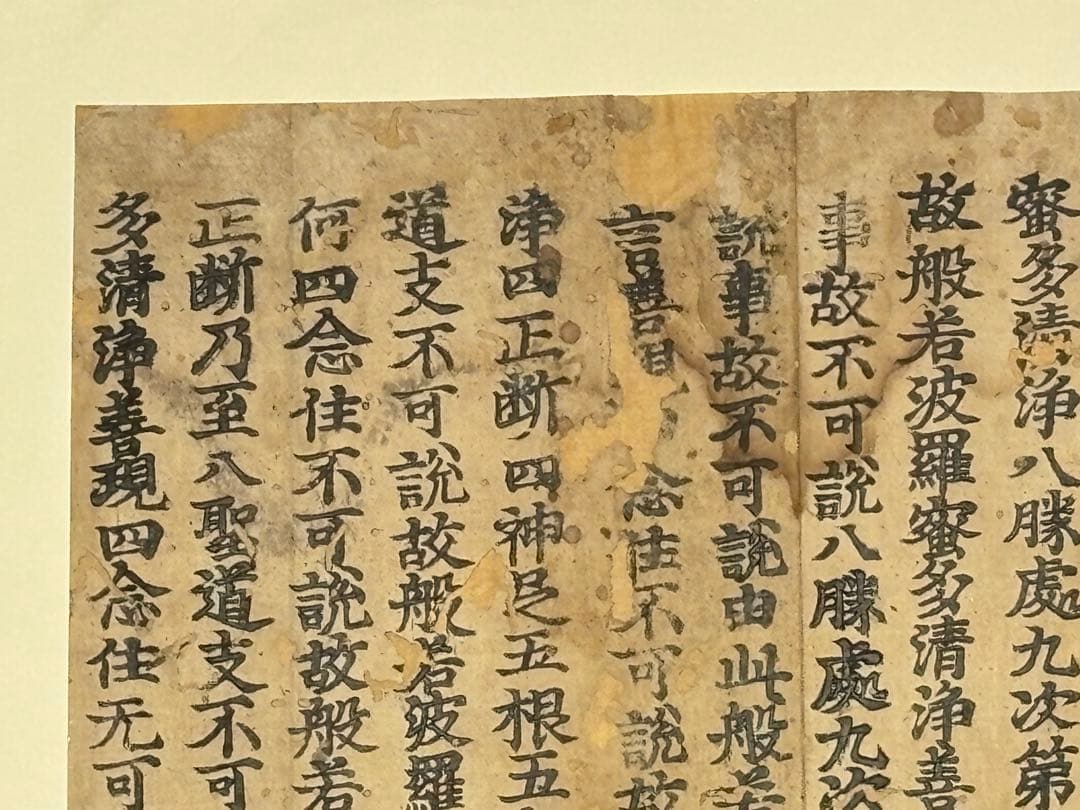 蜜多清淨八勝處九次第
故般若波羅蜜多清淨善
事故不可說八勝處九次
說事故不可說由此般若
言善現念住不可說故
淨四正断四神足五根五
道支不可說故般若波羅
何四念住不可說故般若
正断乃至八聖道支不可
多清淨善現四念住无可